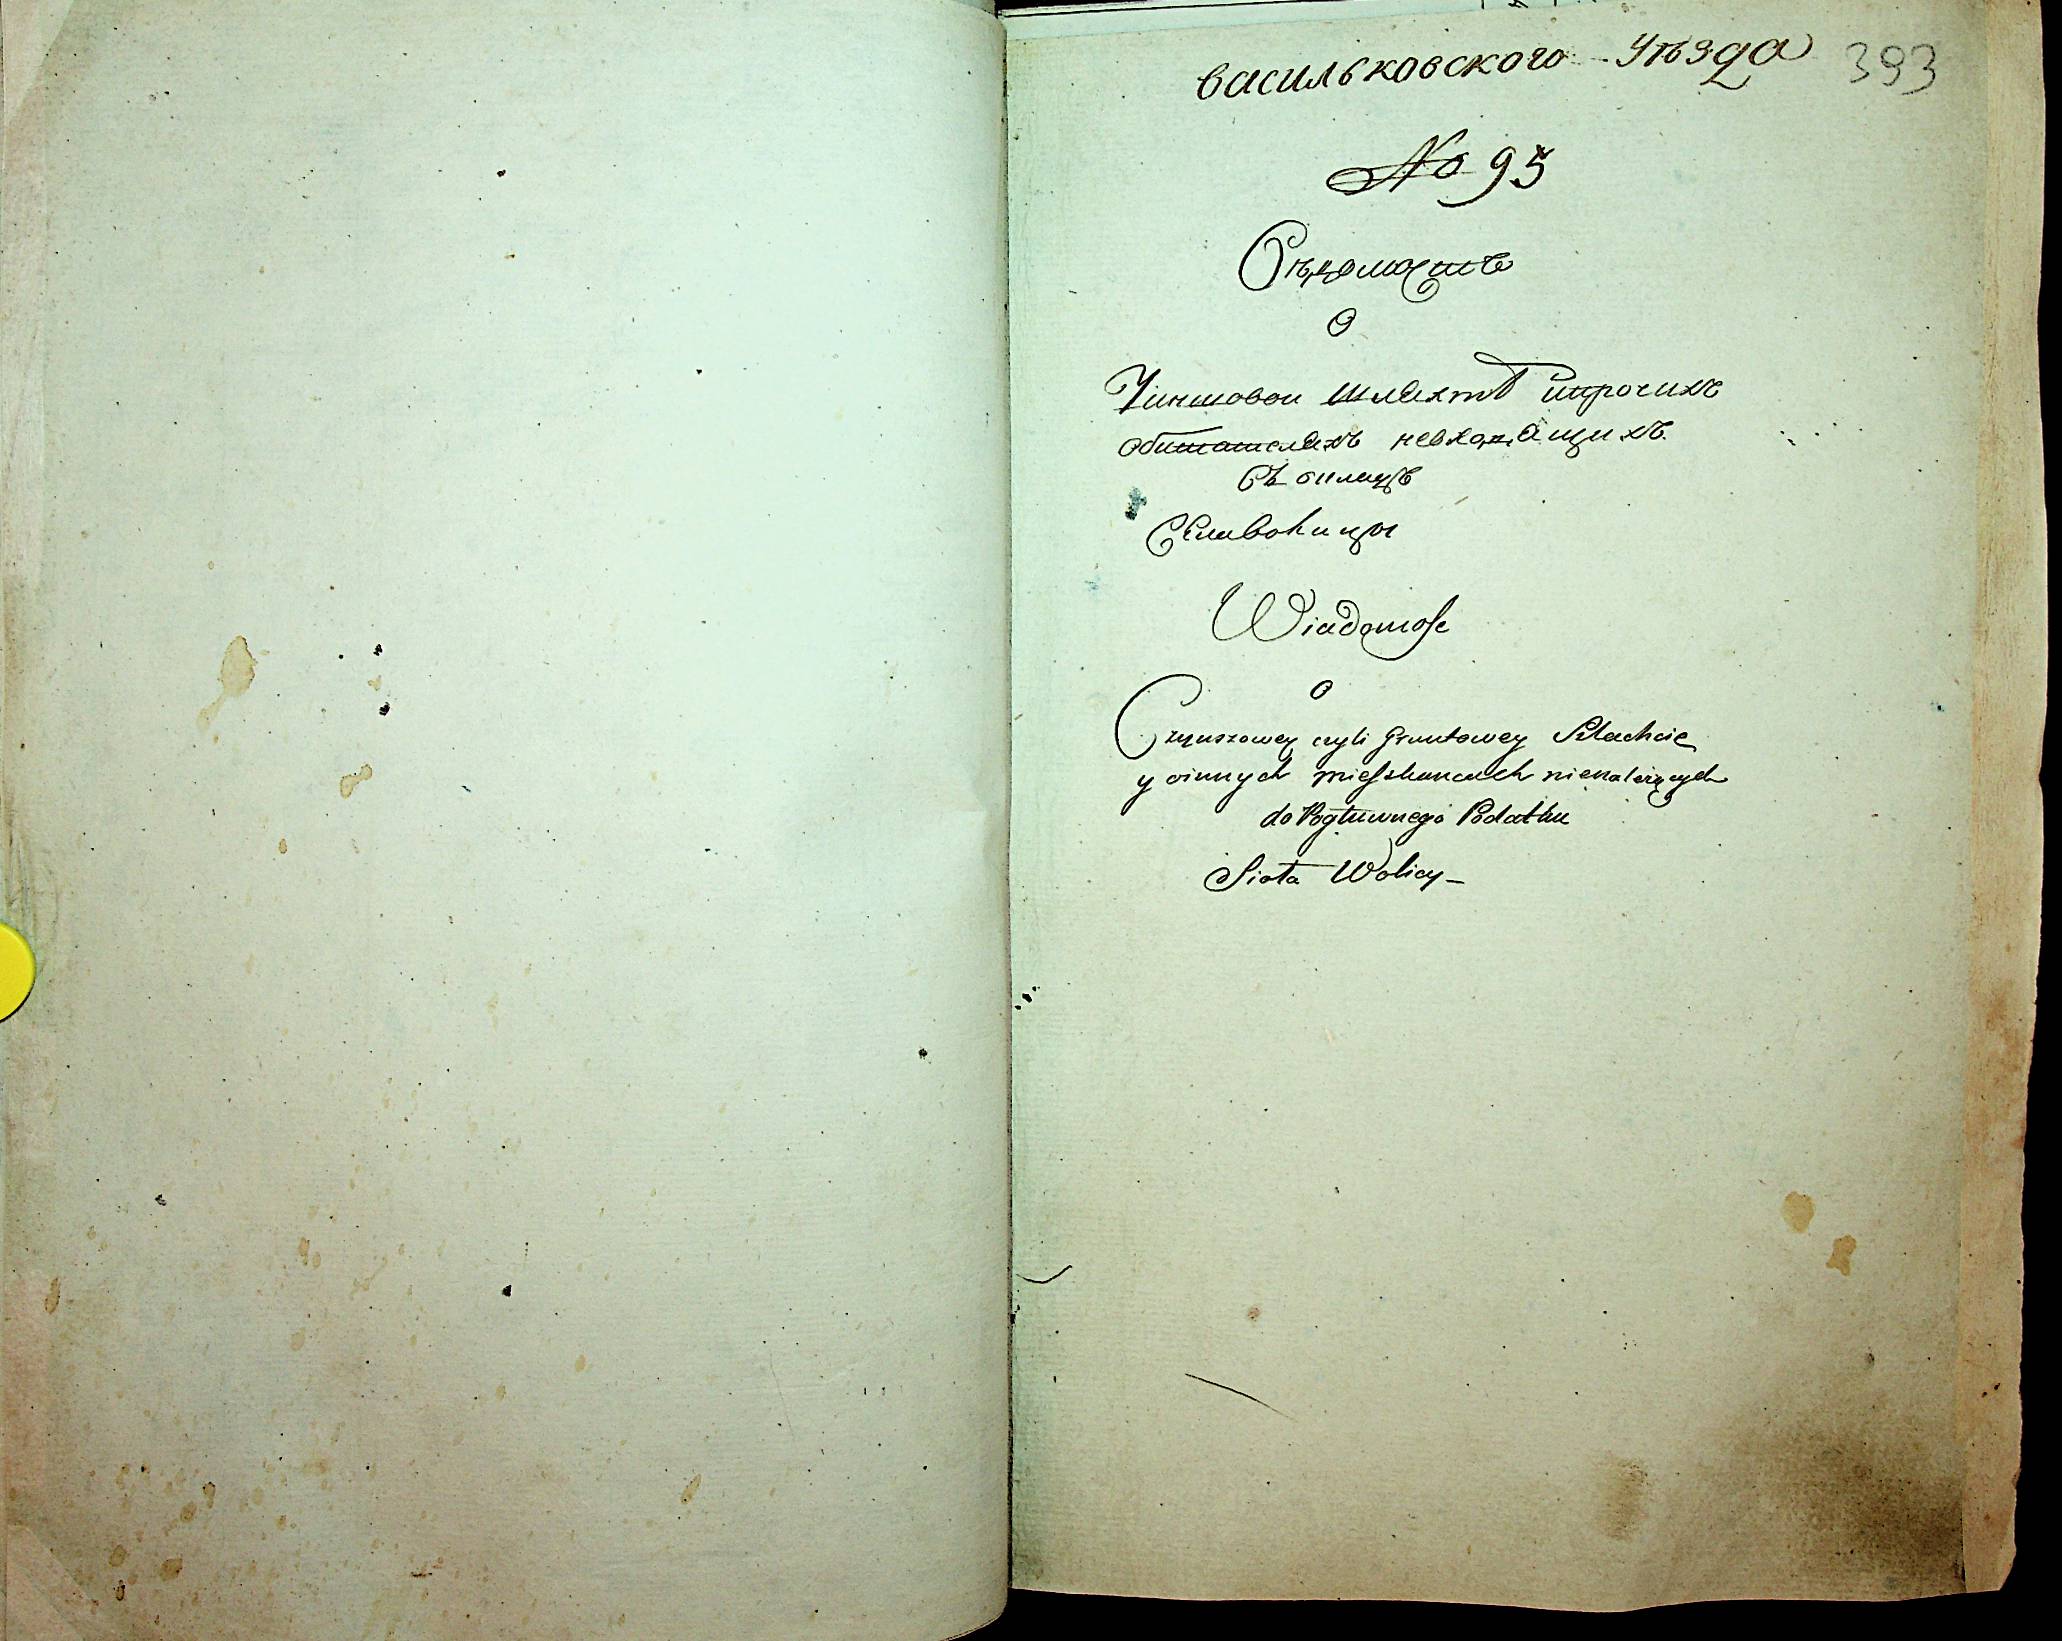 васильковского Уѣзда 393
No 95
Вѣдомость
О
Чиншовои шляхтѣ ипрочихъ
обитателяхъ невходящихъ
Села Волицы
Wiadomość
o
Czynszowey czyli Gruntowey Szlachcie
y oinnych mieszkancach nienależących
do Pogłownego Podatku
Sioła Wolicy_